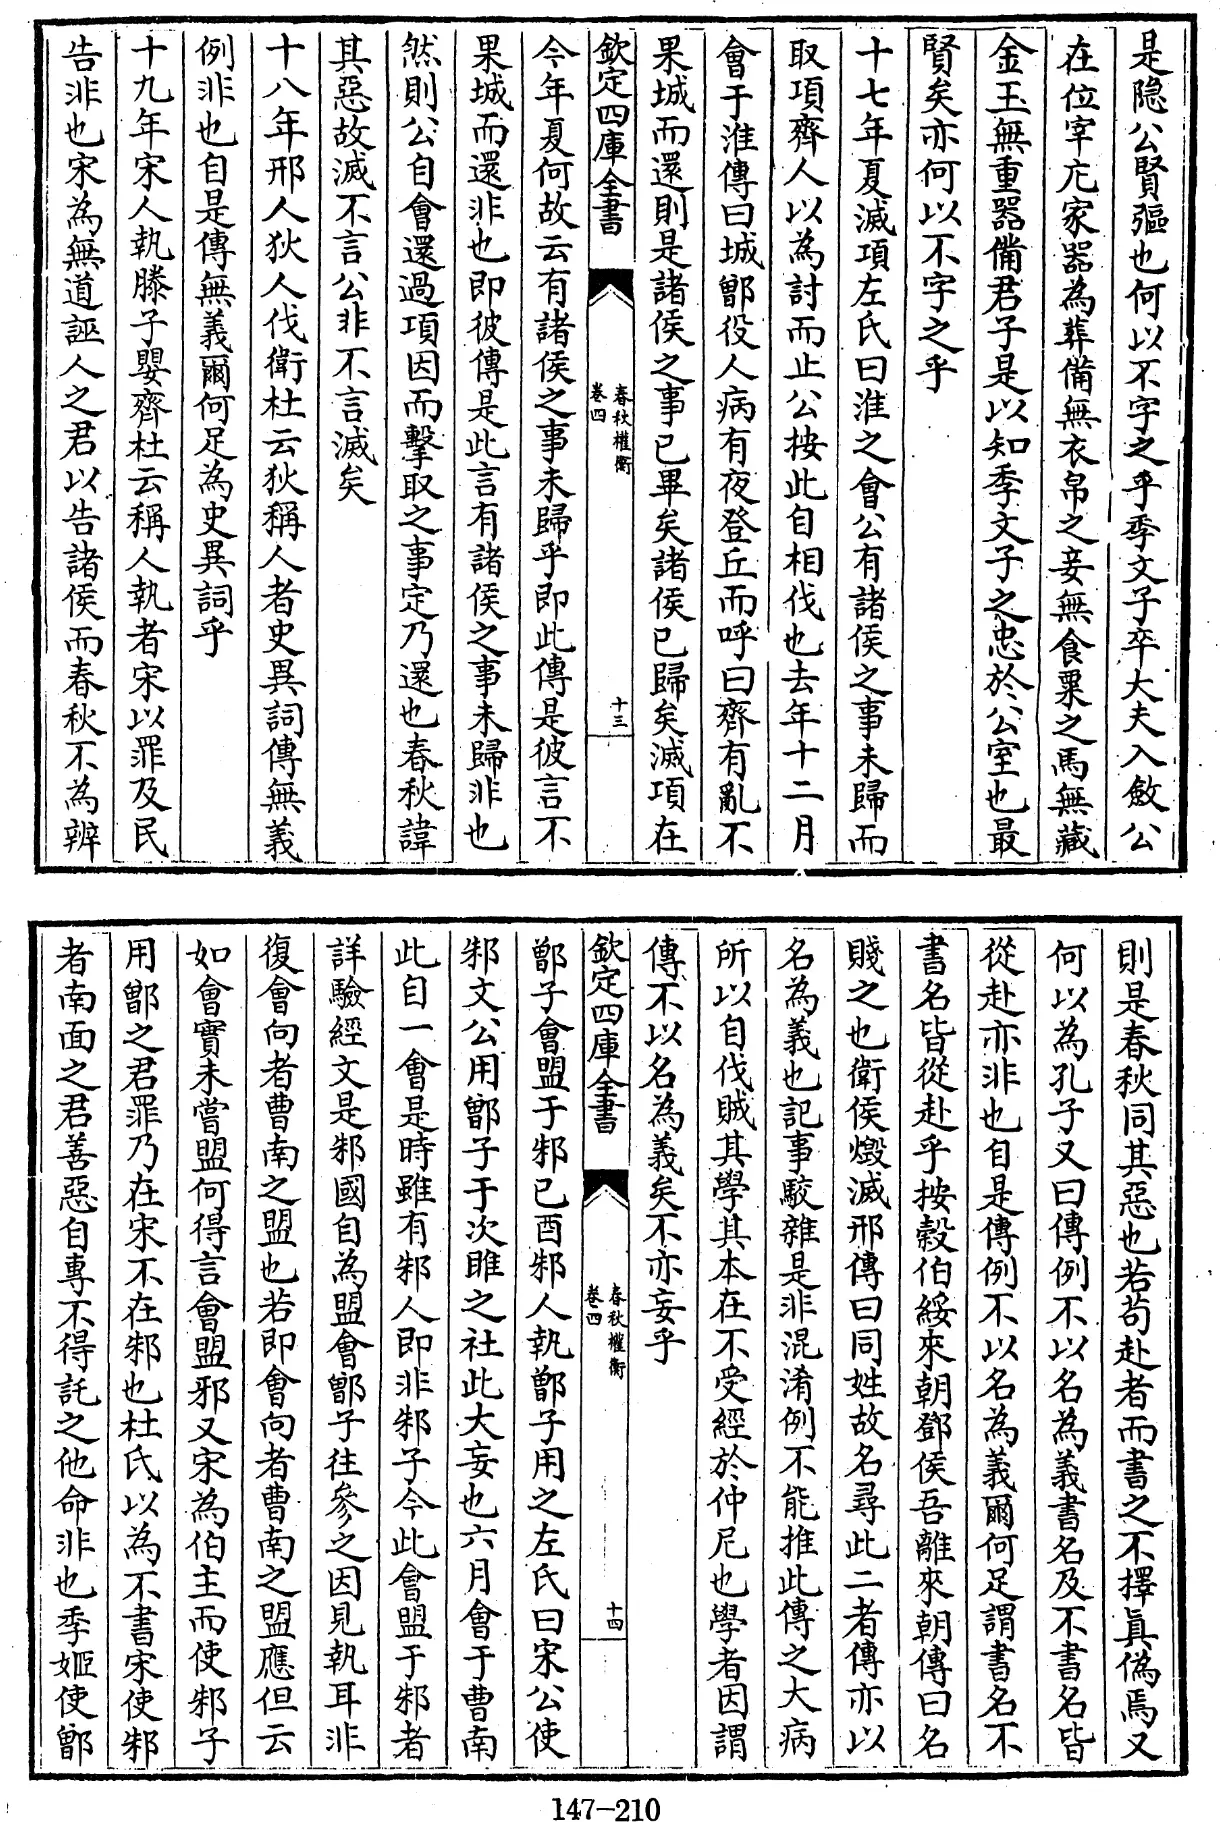 是隐公賢彄也何以不字之乎季文子卒大夫入斂公
在位宰庀家器為葬備無衣帛之妾無食粟之馬無藏
金玉無重器備君子是以知季文子之忠於公室也最
賢矣亦何以不字之乎
十七年夏滅項左氏曰淮之會公有諸侯之事未歸而
取項齊人以為討而止公按此自相伐也去年十二月
會于淮傳曰城鄫役人病有夜登丘而呼曰齊有亂不
果城而還則是諸侯之事已畢矣諸侯已歸矣滅項在
欽定四庫全書
春秋權衡
卷四
十三
今年夏何故云有諸侯之事未歸乎即此傳是彼言不
果城而還非也即彼傳是此言有諸侯之事未歸非也
然則公自會還過項因而擊取之事定乃還也春秋諱
其惡故滅不言公非不言滅矣
十八年邢人狄人伐衛杜云狄稱人者史異詞傳無義
例非也自是傳無義爾何足為史異詞乎
十九年宋人執滕子嬰齊杜云稱人執者宋以罪及民
告非也宋為無道誣人之君以告諸侯而春秋不為辨
則是春秋同其惡也若苟赴者而書之不擇真偽焉又
何以為孔子又曰傳例不以名為義書名及不書名皆
從赴亦非也自是傳例不以名為義爾何足謂書名不
書名皆從赴乎按穀伯綏來朝鄧侯吾離來朝傳曰名
賤之也衛侯燬滅邢傳曰同姓故名尋此二者傳亦以
名為義也記事駮雜是非混淆例不能推此傳之大病
所以自伐賊其學其本在不受經於仲尼也學者因謂
傳不以名為義矣不亦妄乎
欽定四庫全書
春秋權衡
卷四
十四
鄫子會盟于邾己酉邾人執鄫子用之左氏曰宋公使
邾文公用鄫子于次睢之社此大妄也六月會于曹南
此自一會是時雖有邾人即非邾子今此會盟于邾者
詳驗經文是邾國自為盟會鄫子往參之因見執耳非
復會向者曹南之盟也若即會向者曹南之盟應但云
如會實未嘗盟何得言會盟邪又宋為伯主而使邾子
用鄫之君罪乃在宋不在邾也杜氏以為不書宋使邾
者南面之君善惡自專不得託之他命非也季姬使鄫
147-210